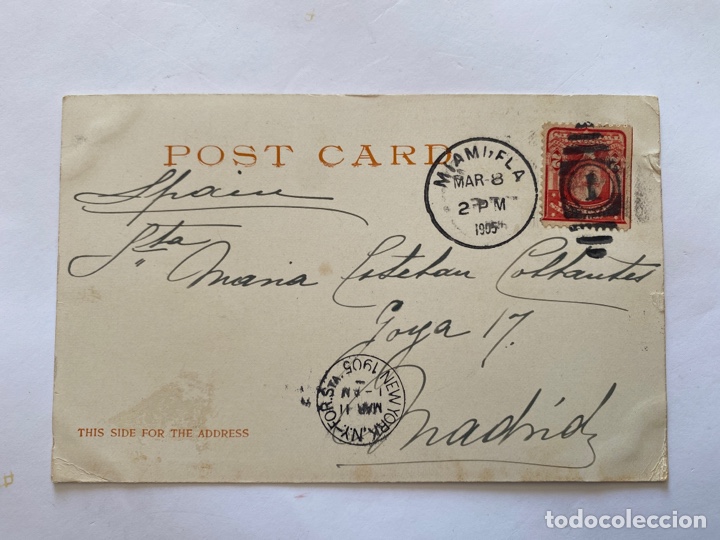 POST CARD
MIAMI, FLA
MAR-8
2-PM
1905
1
Spain
Sta Maria Esteban Collantes
Goya 17.
Madrid
NEW YORK, N.Y. FOR. STA.
MAR 11
PM
1905
THIS SIDE FOR THE ADDRESS
todocoleccion.net